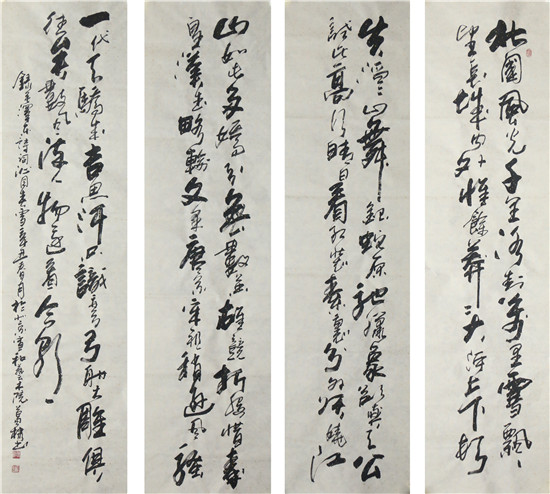 北國風光千里冰封萬里雪飄
望長城內外惟餘莽莽大河上下頓
失滔滔山舞銀蛇原馳蠟象欲與天公
試比高須晴日看紅裝素裹分外妖嬈江
山如此多嬌引無數英雄競折腰惜秦
皇漢武略輸文采唐宗宋祖稍遜風騷
一代天驕成吉思汗只識彎弓射大雕俱
往矣數風流人物還看今朝
錄毛澤東詩詞沁園春雪辛丑 月於北京